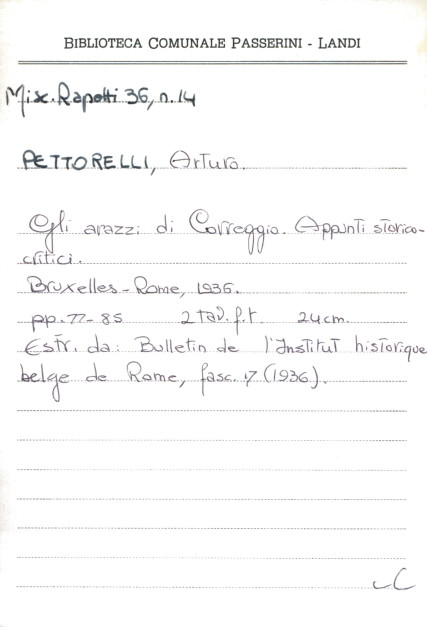 BIBLIOTECA COMUNALE PASSERINI - LANDI
Misc. Rapetti 36, n. 14
PETTORELLI, Arturo.
Gli arazzi di Correggio. Appunti storico-
critici.
Bruxelles - Rome, 1936.
pp. 77-85 2 tav. f.t. 24 cm.
Estr. da: Bulletin de l'Institut historique
belge de Rome, fasc. 17 (1936).